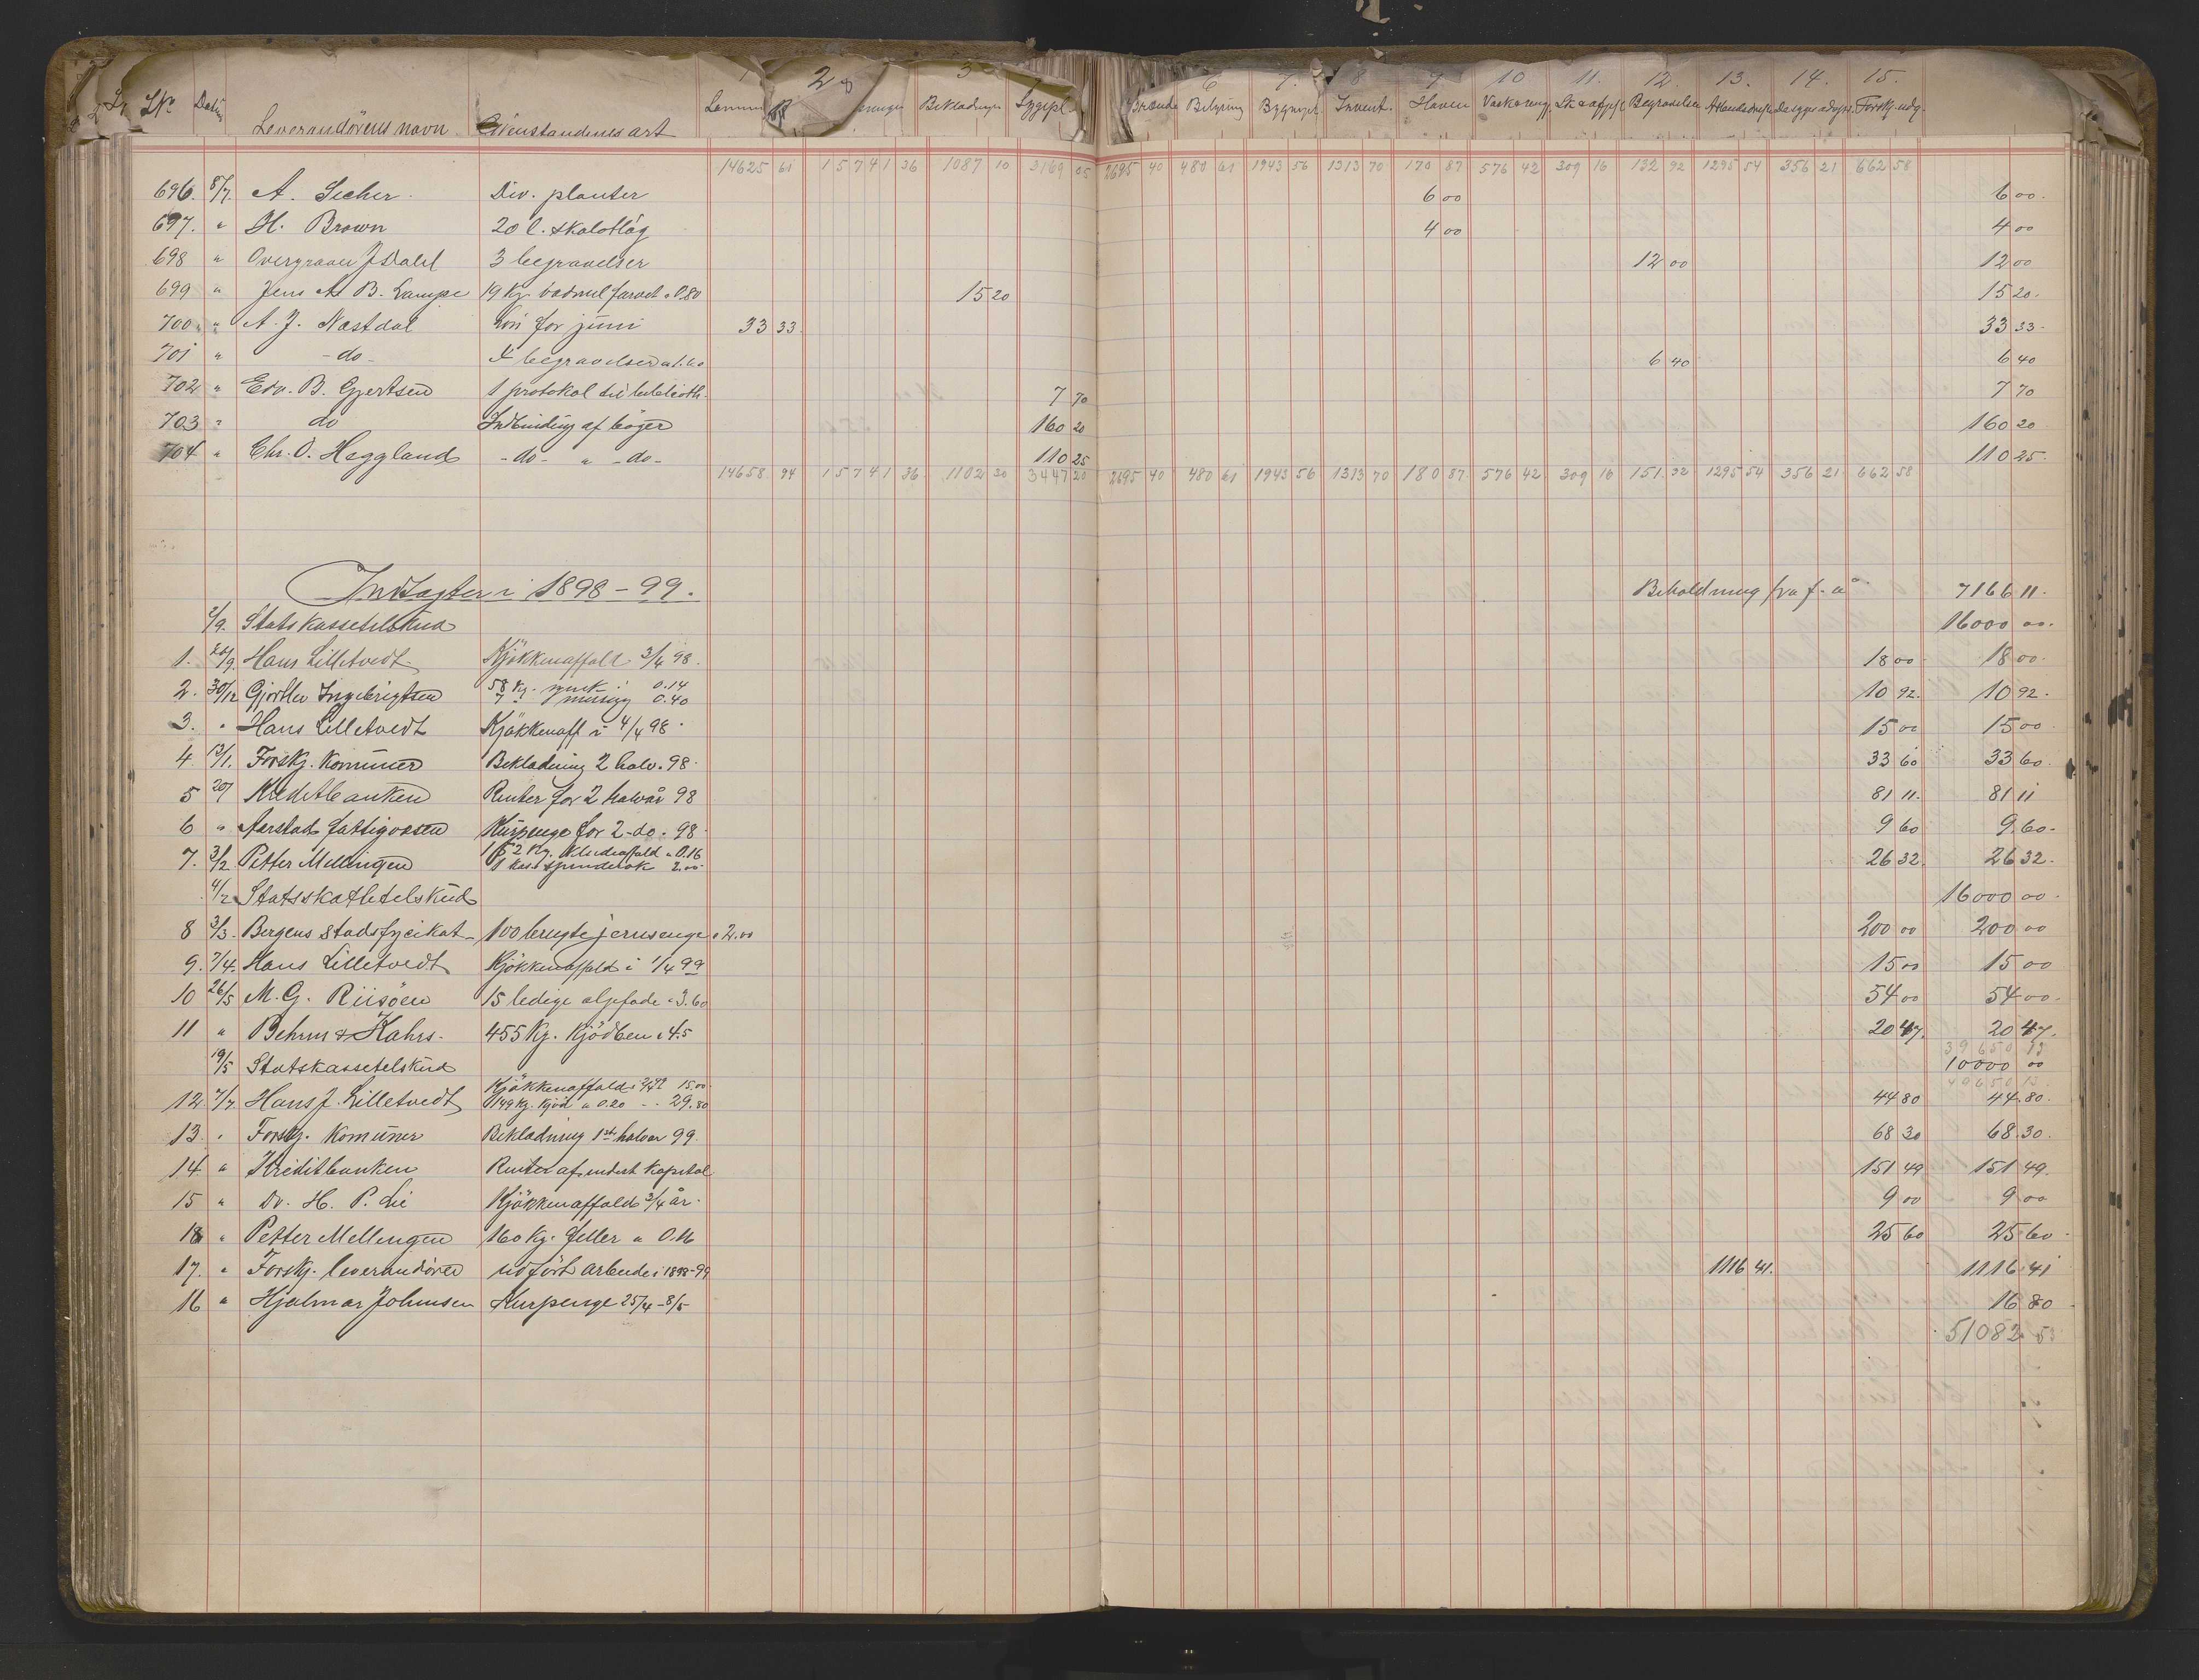 2 3 6 7. 8 9 10 11. 12. 13. 14. 15.
No Datum Leverandörens navn Gjenstandens art Beklædninger Sygepl. Brænde Belysning Bygninger Invent. Haven Vaskerengj. Begravelser Forskj. udg.
14625 61 15741 36 1087 10 3169 05 2695 40 480 61 1943 56 1313 70 170 87 576 42 309 16 132 92 1295 54 356 21 662 58
696. 8/7. A. Secher. Div. planter 6 00 6 00.
697. " H. Brown 20 l. skalotløg 4 00 4 00
698 " Overgraver J Dahl 3 begravelser 12 00 12 00
699 " Jens A. B. Lampe 19 kg. vadmel farvet à 0.80 15 20 15 20.
700 " A. J. Nastdal Lön for juni 33 33. 33 33.
701 " - do - 4 begravelser à 1.60 6 40 6 40
702 " Edv. B. Gjertsen 1 protokol til biblioth. 7 70 7 70
703 " do Indbinding af böger 160 20 160 20
704 " Chr. O. Heggland - do - " - do - 110 25 110 25.
14658 94 15741 36 1102 30 3447 20 2695 40 480 61 1943 56 1313 70 180 87 576 42 309 16 151. 32 1295 54 356 21 662 58
Indtægter i 1898-99. Beholdning fra f. å. 7166 11.
2/9. Statskassetilskud 16000 00.
1. 20/9. Hans Lilletvedt Kjökkenaffald 3/4 98. 18 00 18 00.
2. 30/12 Gjørtler Ingebrigtsen 58 kg. zink à 0.14
7 " messing 0.40 10 92. 10 92.
3. " Hans Lilletvedt Kjökkenaff i 4/4 98. 15 00 15 00
4 13/1. Forskj. Komuner Beklædning 2 halv. 98. 33 60 33 60.
5 20/1 Kreditbanken Renter for 2 halvår 98 81 11. 81 11
6 " Aarstad fattigvæsen Kurpenge for 2 - do. 98. 9 60 9 60.
7. 3/2 Petter Mellingen 152 kg. Kludeaffald à 0.16
1 kas. spinderok 2.00 26 32. 26 32.
4/2 Statsskattetilskud 16000 00.
8 3/3. Bergens stadsfysikat 100 brugte jernsenge à 2.00 200 00 200 00
9. 7/4. Hans Lilletvedt Kjökkenaffald i 1/4 99 15 00 15 00
10 26/5 M. G. Riisöen 15 ledige oljefade à 3.60 54 00 54 00.
11 " Behrm & Kahrs. 455 kg. Kjödben à 4.5 20 47. 20 47.
39650 13
19/5 Statskassetilskud 10000 00
49650 13
12 7/7 Hans J. Lilletvedt Kjökkenaffald i 2/4 99 15.00
149 kg. kjöd à 0.20 - . 29.80 44 80 44.80.
13. " Forskj. Komuner Beklædning 1ste halvår 99. 68 30 68.30.
14 " Kreditbanken Renter af indest Kapital 151 49 151 49.
15 " Dr. H. P. Lie Kjökkenaffald 3/4 år. 9 00 9 00
18 " Petter Mellingen 160 kg. filler à 0.16 25 60 25 60
17. " Forskj. leverandörer udfört arbeide i 1898-99 1116 41. 1116.41
16 " Hjalmar Johnsen Kurpenge 25/4-8/5 16 80
51082 53